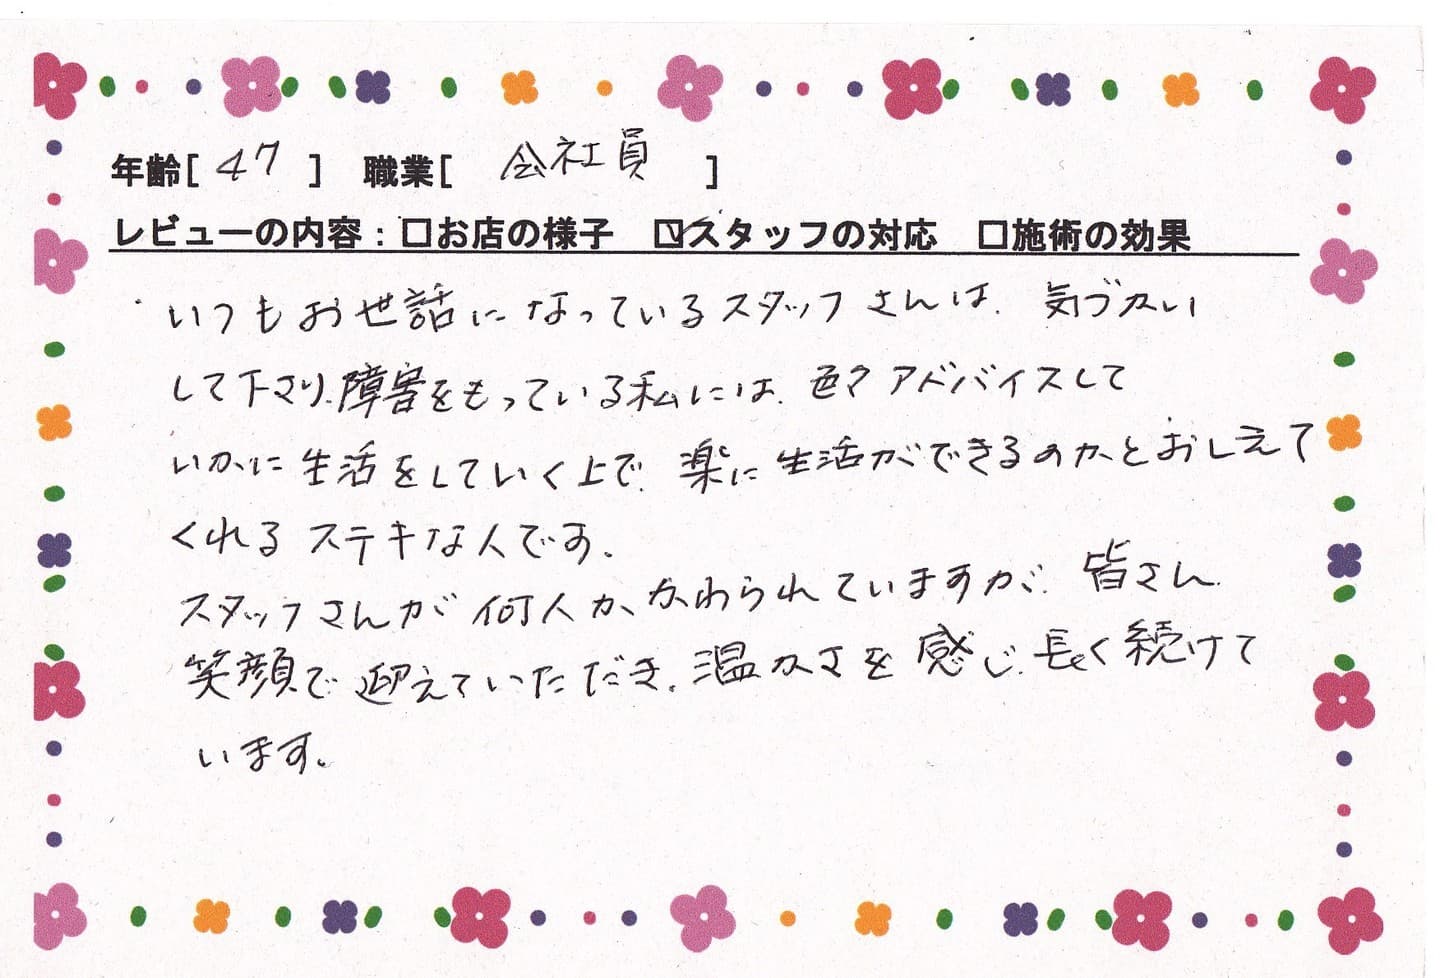 年齢[ 47 ] 職業[ 会社員 ]
レビューの内容:□お店の様子 ☑スタッフの対応 □施術の効果
いつもお世話になっているスタッフさんは、気づかい
して下さり、障害をもっている私には、色々アドバイスして
いかに生活をしていく上で、楽に生活ができるのかとおしえて
くれるステキな人です。
スタッフさんが何人か、かわられていますが、皆さん
笑顔で迎えていただき、温かさを感じ、長く続けて
います。